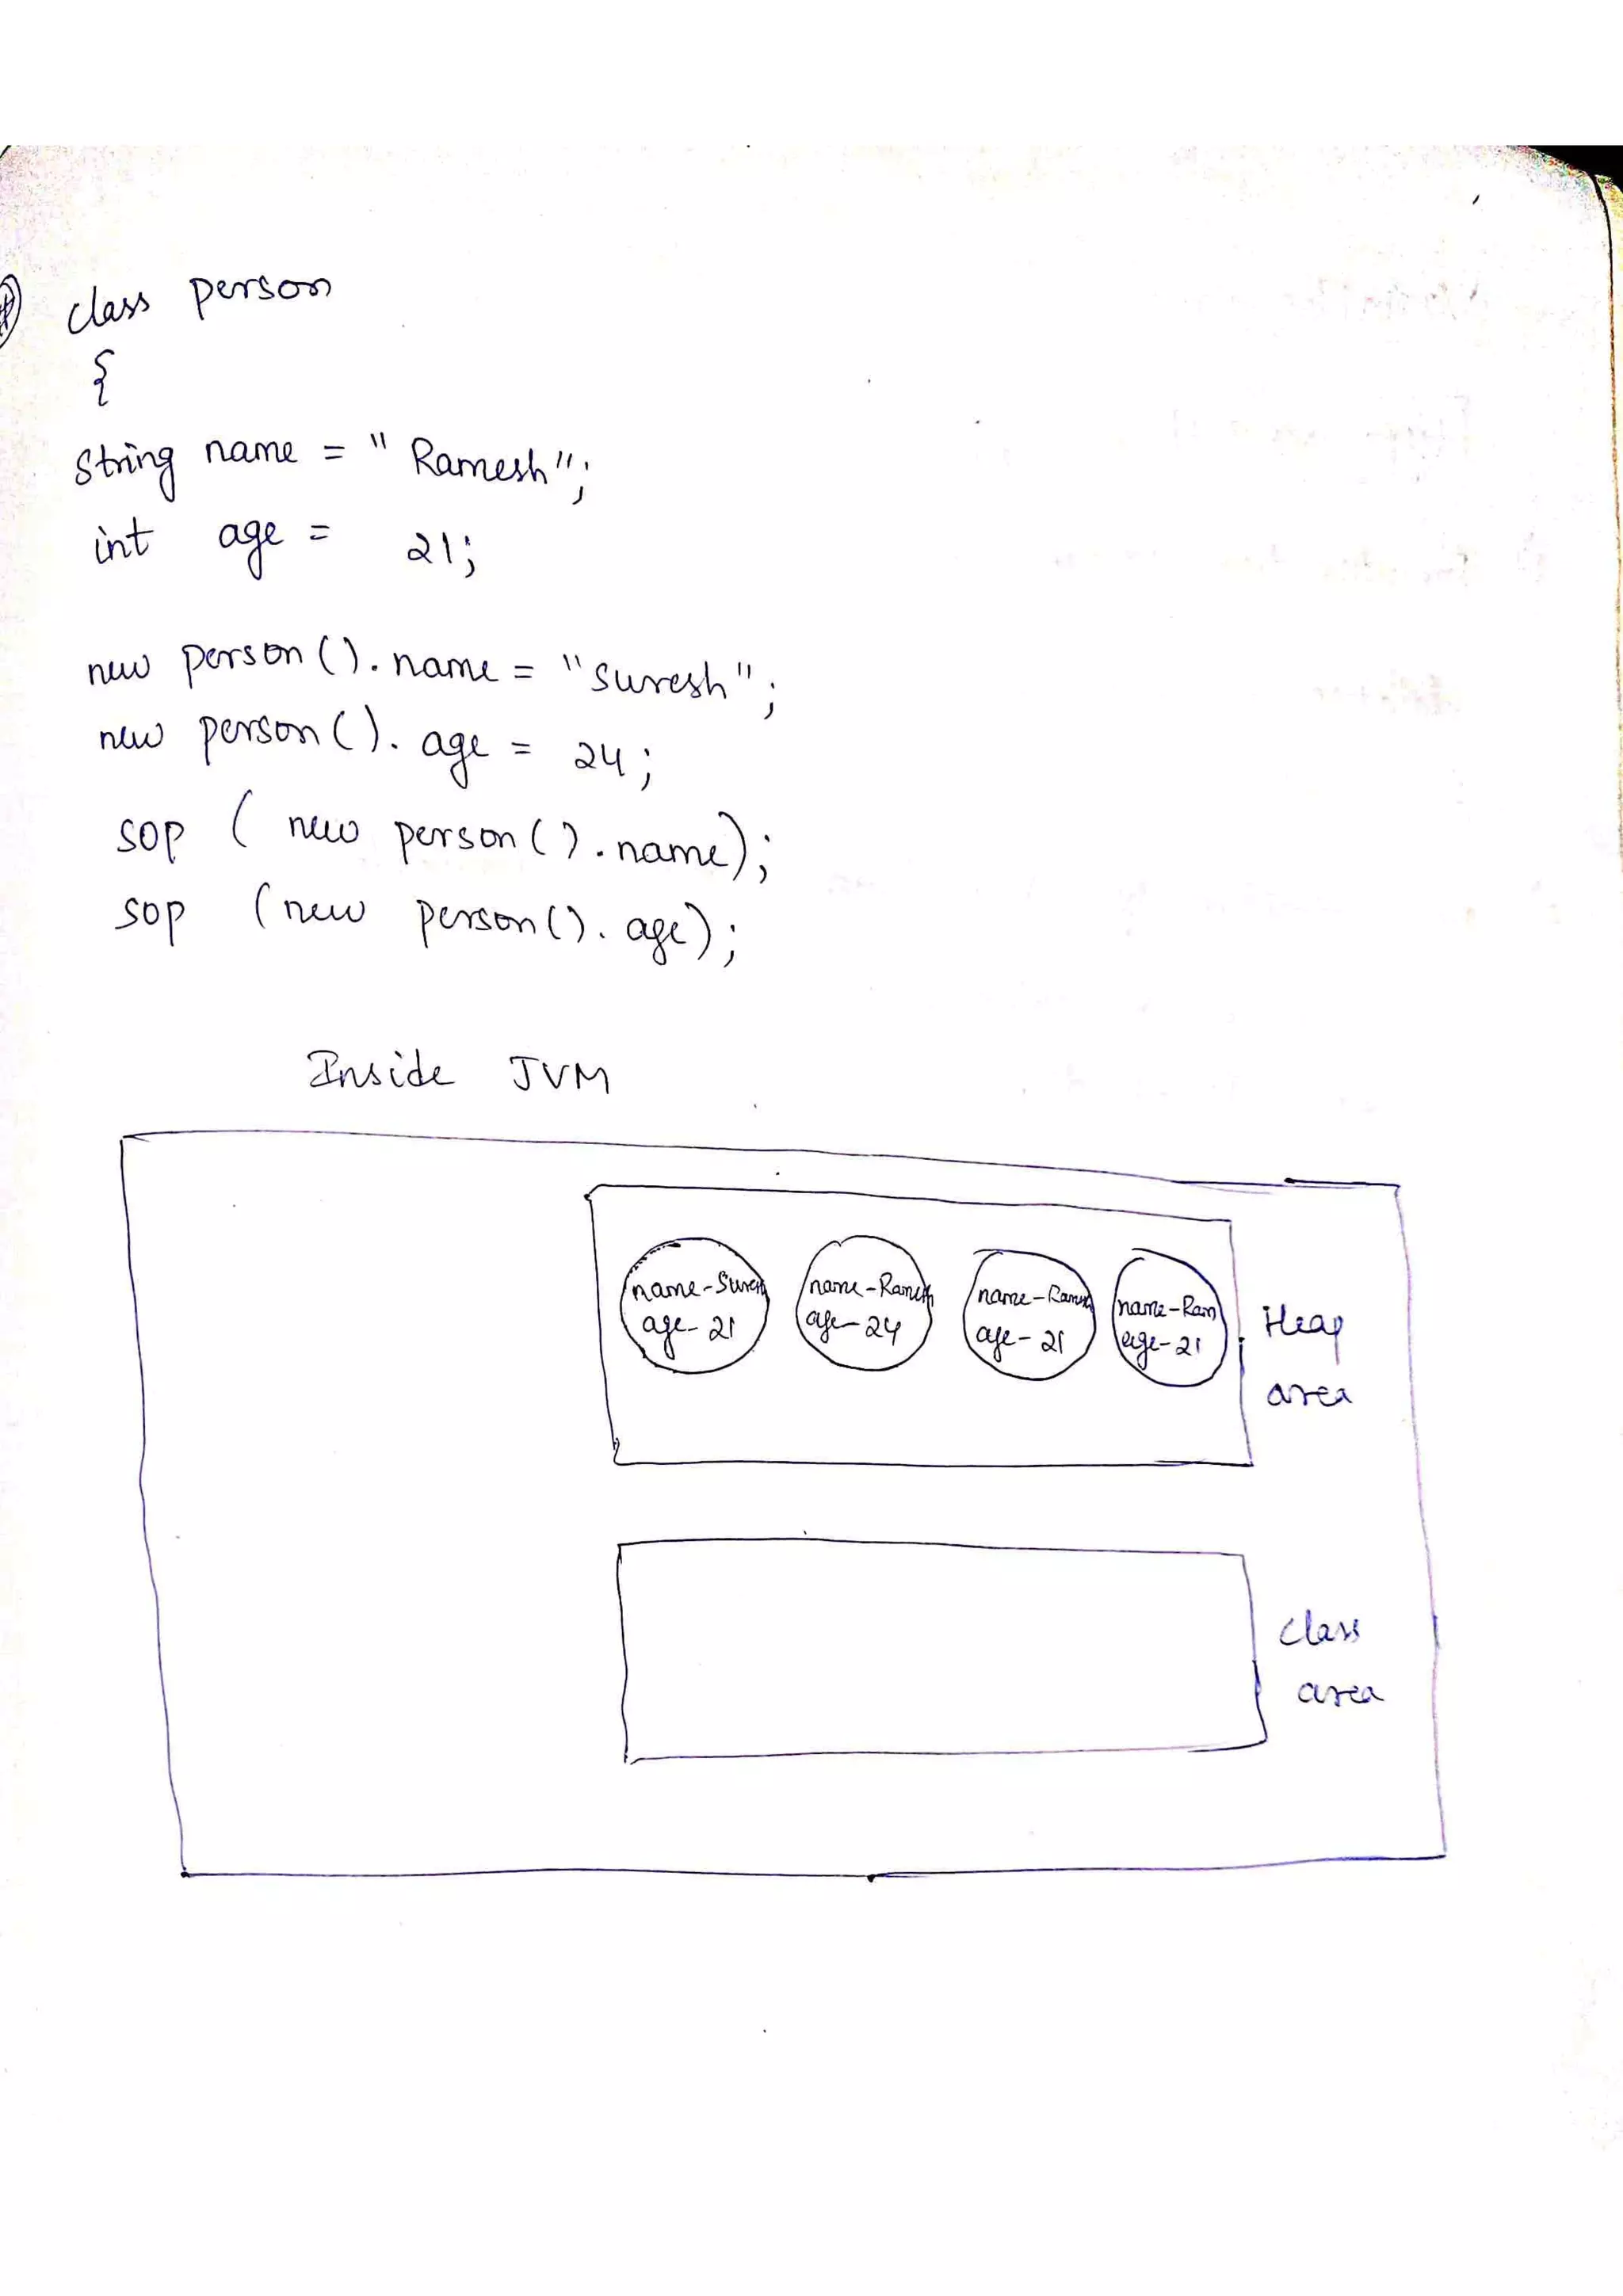 class person
{
String name = " Ramesh";
int age = 21;
new person().name = "Suresh";
new person().age = 24;
sop ( new person().name);
sop (new person().age);
Inside JVM
name-Suresh name-Ramesh name-Ramesh name-Ram
age-21 age-24 age-21 age-21
Heap
area
class
area